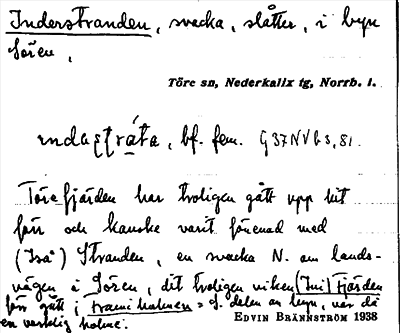 Inderstranden, svacka, slåtter, i byn
Sören,
Töre sn, Nederkalix tg, Norrb. l.
bf. fem. G37NVb3, 81.
Törefjärden har troligen gått upp hit
förr och kanske varit förenad med
(Isä) Stranden, en svacka N. om lands-
vägen i Sören, dit troligen viken (Ini) Fjärden
förr gått i Frami holmen = S. delen av byn, var då
en verklig holme.
EDVIN BRÄNNSTRÖM 1938